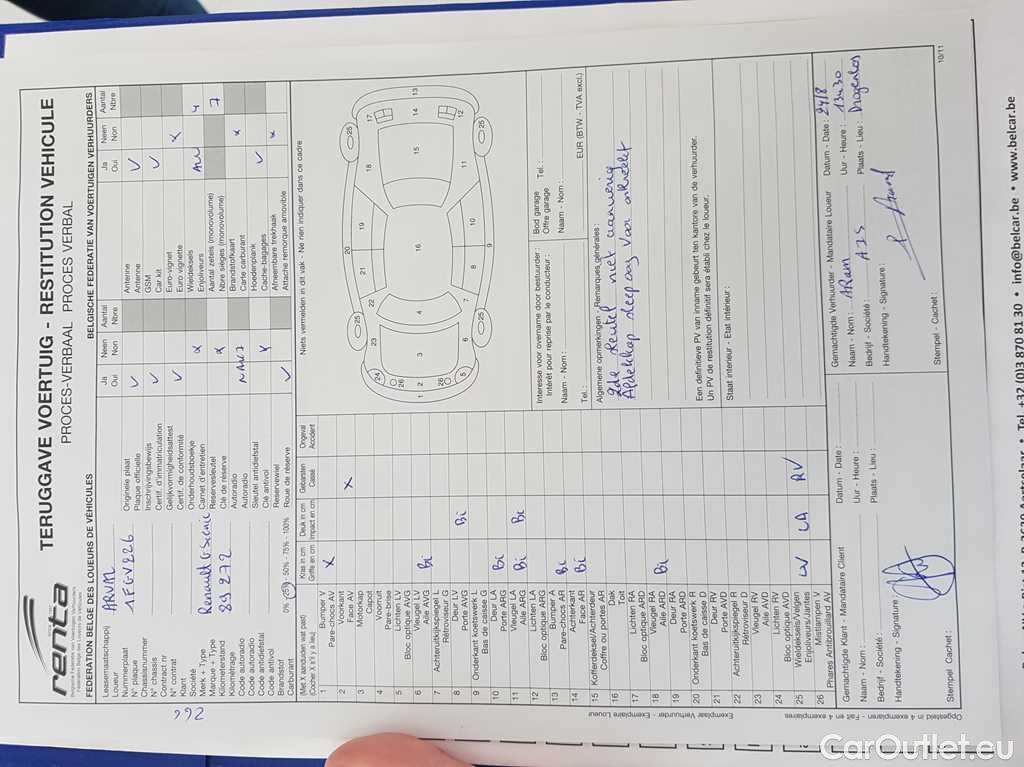 renta
TERUGGAVE VOERTUIG - RESTITUTION VEHICULE
PROCES-VERBAAL PROCES VERBAL
FEDERATION BELGE DES LOUEURS DE VÉHICULES
BELGISCHE FEDERATIE VAN VOERTUIGEN VERHUURDERS
Leasemaatschappij
Loueur
ARVAL
Nummerplaat
N° plaque
Chassisnummer
N° chassis
Contract nr
N° contrat
Klant
Société
Merk + Type
Marque + Type
Renault G Scenic
Kilometerstand
Kilométrage
89272
Code autoradio
Code autoradio
Code antidiefstal
Code antivol
Brandstof
Carburant
0% - 25% - 50% - 75% - 100%
Ja Neen Aantal
Oui Non Nbre
Originele plaat
Plaque officielle
Inschrijvingsbewijs
Certif. d'immatriculation
Gelijkvormigheidsattest
Certif. de conformité
Onderhoudsboekje
Carnet d'entretien
Reservesleutel
Clé de réserve
Autoradio
Autoradio
Sleutel antidiefstal
Clé antivol
Reservewiel
Roue de réserve
Ja Neen Aantal
Oui Non Nbre
Antenne
Antenne
GSM
Car kit
Euro-vignet
Euro vignette
Wieldeksels
Enjoliveurs
4
Aantal zetels (monovolume)
Nbre sièges (monovolume)
7
Brandstofkaart
Carte carburant
Hoedenplank
Cache-bagages
Afneembare trekhaak
Attache remorque amovible
(Met X aanduiden wat past)
(Cocher X s'il y a lieu)
Kras in cm
Griffe en cm
Deuk in cm
Impact en cm
Gebarsten
Cassé
Ongeval
Accident
1 Bumper V
Pare-chocs AV X
2 Voorkant
Face AV X
3 Motorkap
Capot
4 Voorruit
Pare-brise
5 Lichten LV
Bloc optique AVG
6 Vleugel LV
Aile AVG Bi
7 Achteruitkijkspiegel L
Rétroviseur G
8 Deur LV
Porte AVG Bi
9 Onderkant koetswerk L
Bas de caisse G
10 Deur LA
Porte ARG Bi
11 Vleugel LA
Aile ARG Bi Bi
12 Lichten LA
Bloc optique ARG
13 Bumper A
Pare-chocs AR Bi
14 Achterkant
Face AR Bi
15 Kofferdeksel/Achterdeur
Coffre ou portes AR
16 Dak
Toit
17 Lichten RA
Bloc optique ARD
18 Vleugel RA
Aile ARD Bi
19 Deur RA
Porte ARD
20 Onderkant koetswerk R
Bas de caisse D
21 Deur RV
Porte AVD
22 Achteruitkijkspiegel R
Rétroviseur D
23 Vleugel RV
Aile AVD
24 Lichten RV
Bloc optique AVD
25 Wieldeksels/Velgen
Enjoliveurs/Jantes LV LA RV
26 Mistlampen V
Phares Antibrouillard AV
Niets vermelden in dit vak - Ne rien indiquer dans ce cadre
1 2 3 4 5 6 7 8 9 10 11 12 13 14 15 16 17 18 19 20 21 22 23 24 25 25 25 25 26 26
Interesse voor overname door bestuurder :
Intérêt pour reprise par le conducteur :
Naam - Nom :
Tel. :
Bod garage
Offre garage
Tel. :
Naam - Nom :
EUR (BTW - TVA excl.)
Algemene opmerkingen - Remarques générales :
2de sleutel niet aanwezig
Afdekkap sleepoog voor
Een definitieve PV van inname gebeurt ten kantore van de verhuurder.
Un PV de restitution définitif sera établi chez le loueur.
Staat interieur - Etat intérieur :
Gemachtigde Klant - Mandataire Client
Datum - Date :
Naam - Nom :
Uur - Heure :
Bedrijf - Société :
Plaats - Lieu :
Handtekening - Signature :
Stempel - Cachet :
Gemachtigde Verhuurder - Mandataire Loueur
Datum - Date : 24/8
Naam - Nom : ARam
Uur - Heure : 13u30
Bedrijf - Société :
Plaats - Lieu :
Handtekening - Signature :
Stempel - Cachet :
Opgesteld in 4 exemplaren - Fait en 4 exemplaires
Exemplaar Verhuurder - Exemplaire Loueur
10/11
266
Tel +32 (0)13 870 81 30 • info@belcar.be • www.belcar.be
CarOutlet.eu